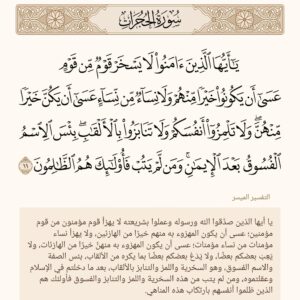 سُورَةُ الحُجُرَاتِ
يَـٰٓأَيُّهَا ٱلَّذِينَ ءَامَنُوا۟ لَا يَسْخَرْ قَوْمٌ مِّن قَوْمٍ
عَسَىٰٓ أَن يَكُونُوا۟ خَيْرًا مِّنْهُمْ وَلَا نِسَآءٌ مِّن نِّسَآءٍ عَسَىٰٓ أَن يَكُنَّ خَيْرًا
مِّنْهُنَّ ۖ وَلَا تَلْمِزُوٓا۟ أَنفُسَكُمْ وَلَا تَنَابَزُوا۟ بِٱلْأَلْقَـٰبِ ۖ بِئْسَ ٱلِٱسْمُ
ٱلْفُسُوقُ بَعْدَ ٱلْإِيمَـٰنِ ۚ وَمَن لَّمْ يَتُبْ فَأُو۟لَـٰٓئِكَ هُمُ ٱلظَّـٰلِمُونَ ١١
التفسير الميسر
يا أيها الذين صدَّقوا الله ورسوله وعملوا بشريعته لا يهزأ قوم مؤمنون من قوم
مؤمنين؛ عسى أن يكون المهزوء به منهم خيرًا من الهازئين، ولا يهزأ نساء
مؤمنات من نساء مؤمنات؛ عسى أن يكون المهزوء به منهنَّ خيرًا من الهازئات، ولا
يَعِبْ بعضكم بعضًا، ولا يَدْعُ بعضكم بعضًا بما يكره من الألقاب، بئس الصفة
والاسم الفسوق، وهو السخرية واللمز والتنابز بالألقاب، بعد ما دخلتم في الإسلام
وعقلتموه، ومن لم يتب من هذه السخرية واللمز والتنابز والفسوق فأولئك هم
الذين ظلموا أنفسهم بارتكاب هذه المناهي.